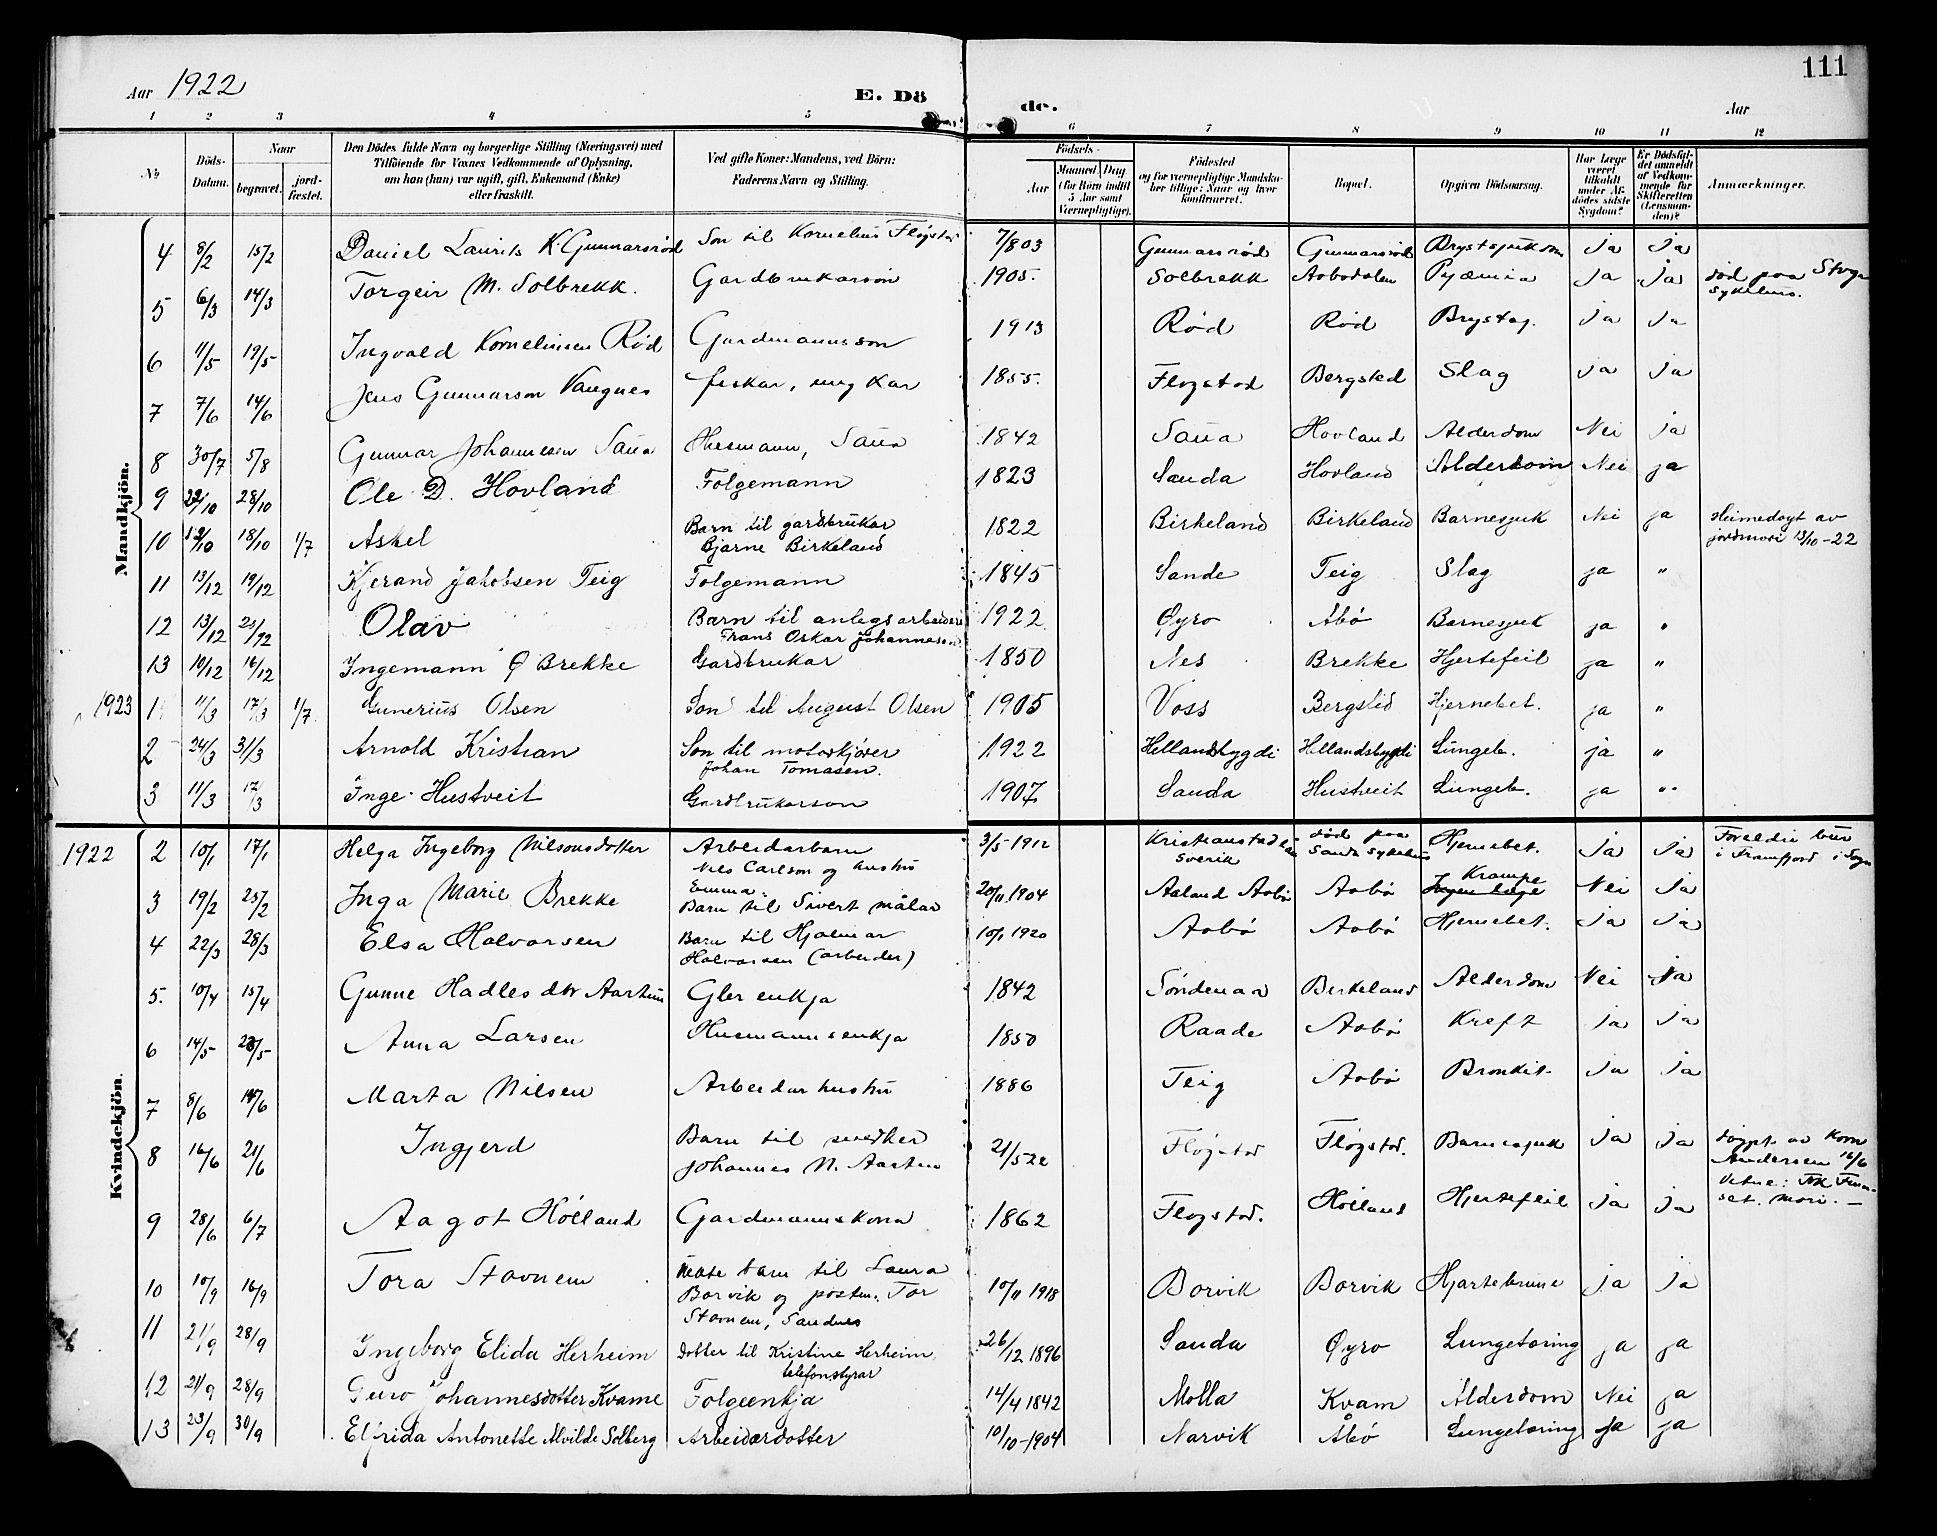 111
Aar 1922
E. Dö
de.
Aar
1 2 3 4 5 6 7 8 9 10 11 12
No
Döds-Datum.
Naar
begravet.
jord-fæstet.
Den Dödes fulde Navn og borgerlige Stilling (Næringsvei) med
Tilföiende for Voxnes Vedkommende af Oplysning,
om han (hun) var ugift, gift, Enkemand (Enke)
eller fraskilt.
Ved gifte Koner: Mandens, ved Börn:
Faderens Navn og Stilling.
Födsels-
Aar
Maaned Dag
(for Börn indtil
5 Aar samt
Værnepligtige).
Födested
og for værnepligtige Mandska-
ber tillige: Naar og hvor
konfirmeret.
Bopæl.
Opgiven Dödsaarsag.
Har Læge
været
tilkaldt
under Af-
dödes sidste
Sygdom?
Er Dödsfal-
det anmeldt
af Vedkom-
mende for
Skifteretten
(Lensman-
den)?
Anmærkninger.
Mandkjön.
4 8/2 15/2 Daniel Laurits K. Gunnarsrød Son til Kornelius Fløgstad 7/8 03 Gunnarsrød Gunnarsrød Brystsjukdom Ja Ja
5 6/3 14/3 Torgeir M. Solbrekk. Gardbrukarson 1905. Solbrekk Aabødalen Pyæmia Ja Ja død paa Stvgr sykehus.
6 11/5 19/5 Ingvald Kornelinsen Rød Gardmannsson 1913 Rød Rød Brystsj. Ja Ja
7 7/6 14/6 Jens Gunnarson Vangnes fiskar, ungkar 1855. Fløgstad Bergsted Slag Ja Ja
8 30/7 5/8 Gunnar Johannesen Saua Husmann, Saua 1842 Saua Hovland Alderdom Nei Ja
9 22/10 28/10 Ole D. Hovland Folgemann 1823 Sauda Hovland Alderdom Nei ja
10 12/10 18/10 1/7 Askel Barn til gardbrukar
Bjarne Birkeland 1822 Birkeland Birkeland Barnesjuk Nei ja Heimedøpt av
jordmori 13/10-22
11 13/12 19/12 Kjerand Jakobsen Teig Folgemann 1845 Sande Teig Slag ja "
12 13/12 21/12 Olav Barn til anlegsarbeider
Frans Oskar Johannesen 1922 Øyro Åbø Barnesjuk ja "
13 10/12 16/12 Ingemann Ø Brekke Gardbrukar 1850 Nes Brekke Hjertefeil ja "
1923 1 11/3 17/3 1/7 Gunerius Olsen Son til August Olsen 1905 Voss Bergstid Hjernebet. ja "
2 24/3 31/3 Arnold Kristian Son til motorkjører
Johan Tomasen. 1922 Hellandsbygdi Hellandsbygdi Lungeb. ja "
3 11/3 17/3 Inge Hustveit Gardbrukarson 1907 Sauda Hustveit Lungeb. ja "
Kvindekjön.
1922 2 10/1 17/1 Helga Ingeborg Nilsonsdotter Arbeidarbarn
Nils Carlson og hustru
Emma. 3/5-1912 Kristianstad län
Sverik død paa
Sauda sykehus Hjernebet. Ja Ja Foreldri bur
i Framfjord i Sogn
3 19/2 25/2 Inga Marie Brekke Barn til Sivert målar 20/11 1904 Aaland Aabø Aabø Krampe Ingen læge Nei Ja
4 22/3 28/3 Elsa Halvorsen Barn til Hjalmar
Halvorsen (arbeider) 10/1 1920 Aabø Aabø Hjernebet. Ja Ja
5. 10/4 15/4 Gunne Hadlesdtr Aartun Gler enkja 1842 Søndenaa Berkeland Alderdom Nei Ja
6 14/5 23/5 Anna Larsen Husmannsenkja 1850 Raade Aabø Kreft Ja Ja
7 8/6 14/6 Marta Nilsen Arbeidarhustru 1886 Teig Aabø Bronkit. Ja Ja
8 16/6 21/6 Ingjerd Barn til snedker
Johannes N. Aartun 21/5 22 Fløgstad Fløgstad. Barnesjuk Ja Ja døypt av Korn
Andersen 16/6
9 28/6 6/7 Aagot Hölland Gardmannskona 1862 Fløgstad. Hölland Hjertefeil Ja Ja
10 10/9 16/9 Tora Stavnem Uekte barn til Laura
Borvik og postm. Tor
Stavnem, Sandnes 10/11 1918 Borvik Borvik Hjartebrune Ja Ja
11 21/9 28/9 Ingeborg Elida Herheim Dotter til Kristine Herheim,
telefonstyrar 26/12 1896 Sauda Øyro Lungetæring ja ja
12 21/9 28/9 Guro Johannesdotter Kvame Folgeenkja 14/4 1842 Molla Kvam Alderdom Nei ja
13 23/9 30/9 Elfrida Antonette Alvilde Solberg Arbeidardotter 10/10-1904 Narvik Åbø Lungetæring Ja ja